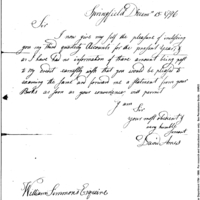 Springfield Decem.r 19. 1796
Sir
I now give my self the pleasure of inclosing
you my third quarterly Accounts for the present year, &
as I have had no information of those accounts being past
to my credit earnestly wish that you would be pleased to
examine the same and forward me a statement from your
Books as soon as your convenience will permit
I am
Sir
your most obedient &
very humble
Servant
David Ames
William Simmons Esquire